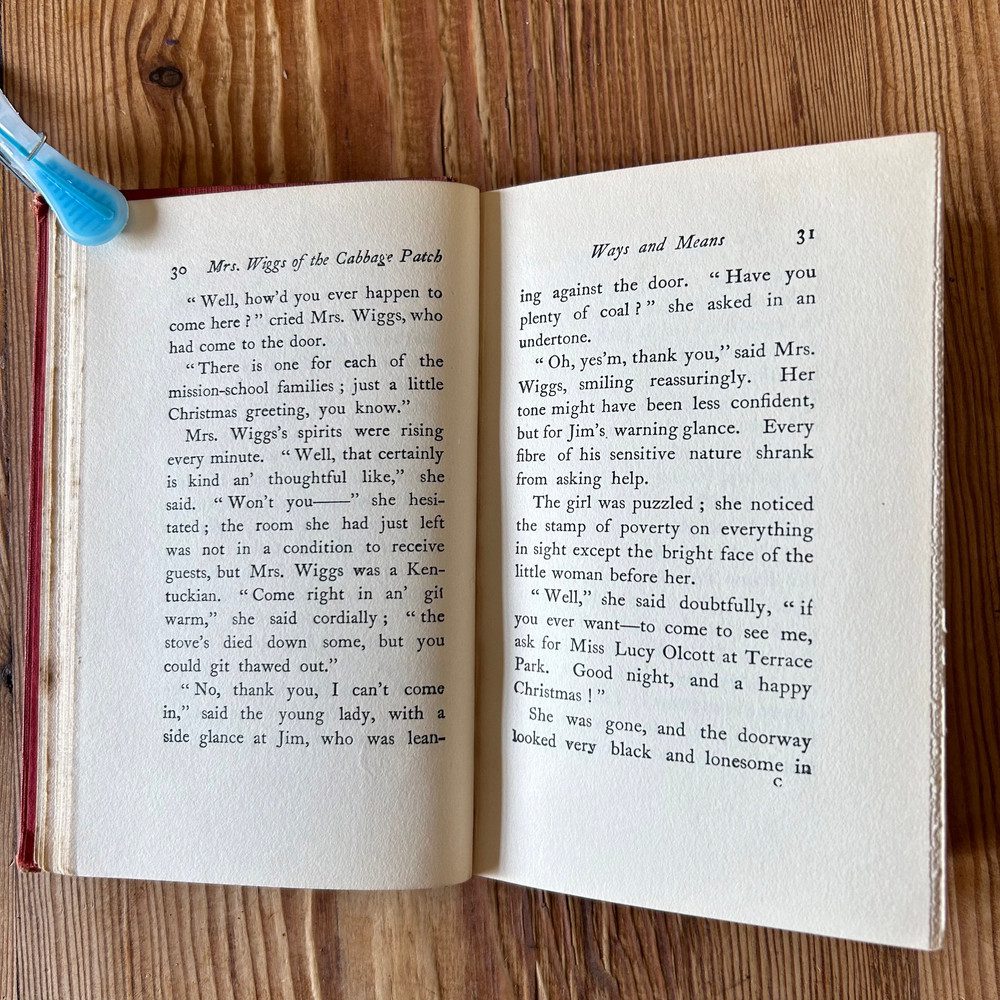 30 Mrs. Wiggs of the Cabbage Patch
“ Well, how’d you ever happen to
come here ? ” cried Mrs. Wiggs, who
had come to the door.
“ There is one for each of the
mission-school families ; just a little
Christmas greeting, you know.”
Mrs. Wiggs’s spirits were rising
every minute. “ Well, that certainly
is kind an’ thoughtful like,” she
said. “ Won’t you——” she hesi-
tated ; the room she had just left
was not in a condition to receive
guests, but Mrs. Wiggs was a Ken-
tuckian. “ Come right in an’ git
warm,” she said cordially ; “ the
stove’s died down some, but you
could git thawed out.”
“ No, thank you, I can’t come
in,” said the young lady, with a
side glance at Jim, who was lean-
Ways and Means 31
ing against the door. “ Have you
plenty of coal ? ” she asked in an
undertone.
“ Oh, yes’m, thank you,” said Mrs.
Wiggs, smiling reassuringly. Her
tone might have been less confident,
but for Jim’s warning glance. Every
fibre of his sensitive nature shrank
from asking help.
The girl was puzzled ; she noticed
the stamp of poverty on everything
in sight except the bright face of the
little woman before her.
“ Well,” she said doubtfully, “ if
you ever want—to come to see me,
ask for Miss Lucy Olcott at Terrace
Park. Good night, and a happy
Christmas ! ”
She was gone, and the doorway
looked very black and lonesome in
C